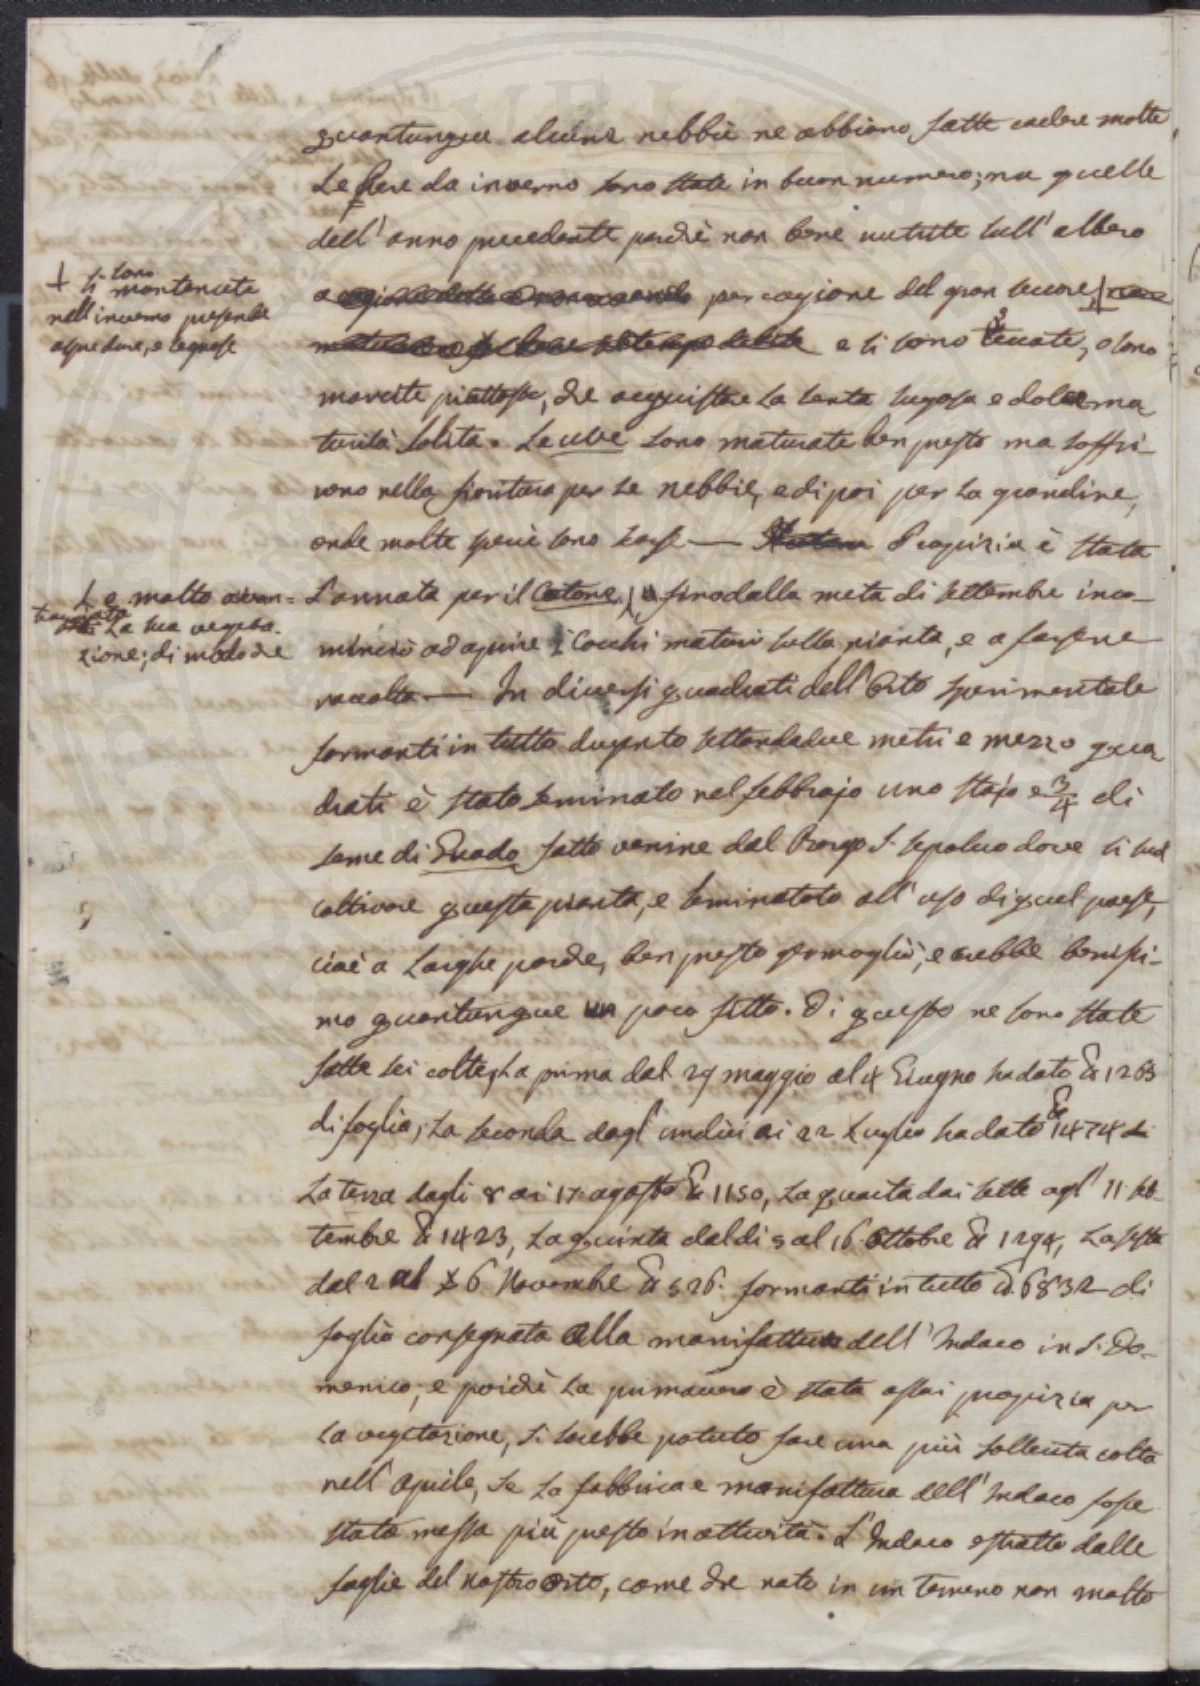 quantunque alcune nebbie ne abbiano fatte cadere molte
Le Pere da inverno sono state in buon numero; ma quelle
dell'anno precedente perchè non bene nutrite sull'albero
a cagione per cagione del gran seccore,
+ si sono mantenute
nell'inverno presente
aspre dure, e legnose
e si sono seccate, o sono
marcite piuttosto, che acquistare la tanta sugosa e dolce ma
turità solita. Le uve sono maturate ben presto ma soffri-
rono nella fioritura per le nebbie, e di poi per la grandine,
onde molte perciò sono scarse — Propizia è stata
L'annata per il Cotone,
+ e molto avan-
taggiata
La sua vegeta-
zione; di modo che
fino dalla metà di settembre inco-
minciò ad aprire i Cocchi maturi sulla pianta, e a farsene
raccolta — In diversi quadrati dell'Orto sperimentale
formanti in tutto dugento settandadue metri e mezzo qua
drati è stato seminato nel febbrajo uno stajo e 3/4 di
seme di Guado fatto venire dal Borgo S. Sepolcro dove si suol
coltivare questa pianta, e seminatolo all'uso di quel paese,
cioè a Larghe porche, ben presto germogliò, e crebbe benissi-
mo quantunque un poco fitto. Di questo ne sono state
fatte sei colte; La prima dal 29 maggio al 4 Giugno ha dato ℔ 1263
di foglia; La seconda dagl'undici ai 22 Luglio ha dato ℔ 1474
La terza dagli 8 ai 17 agosto ℔ 1150, La quarta dai sette agl' 11 set-
tembre ℔ 1423, La quinta dal di 5 al 16 Ottobre ℔ 1294, La sesta
dal 2 al 6 Novembre ℔ 526. formanti in tutto ℔ 6832 di
foglia consegnata alla manifattura dell'Indaco in S. Do-
menico; e poichè La primavera è stata assai propizia per
La vegetazione, si sarebbe potuto fare una più sollecita colta
nell'Aprile, se La fabbrica e manifattura dell'Indaco fosse
stata messa più presto in attività. L'Indaco estratto dalle
foglie del nostro orto, come che nato in un terreno non molto